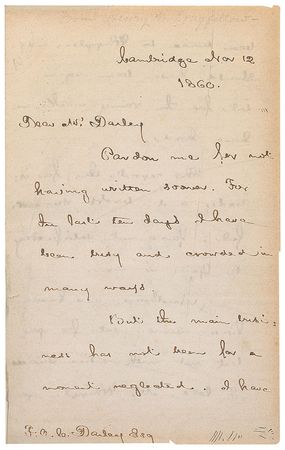 Cambridge Nov 12
1860.
Dear Mr. Darley
Pardon me for not
having written sooner. For
the last ten days I have
been busy and crowded in
many ways
But the main busi-
ness has not been for a
moment neglected. I have
F.O.C. Darley Esq